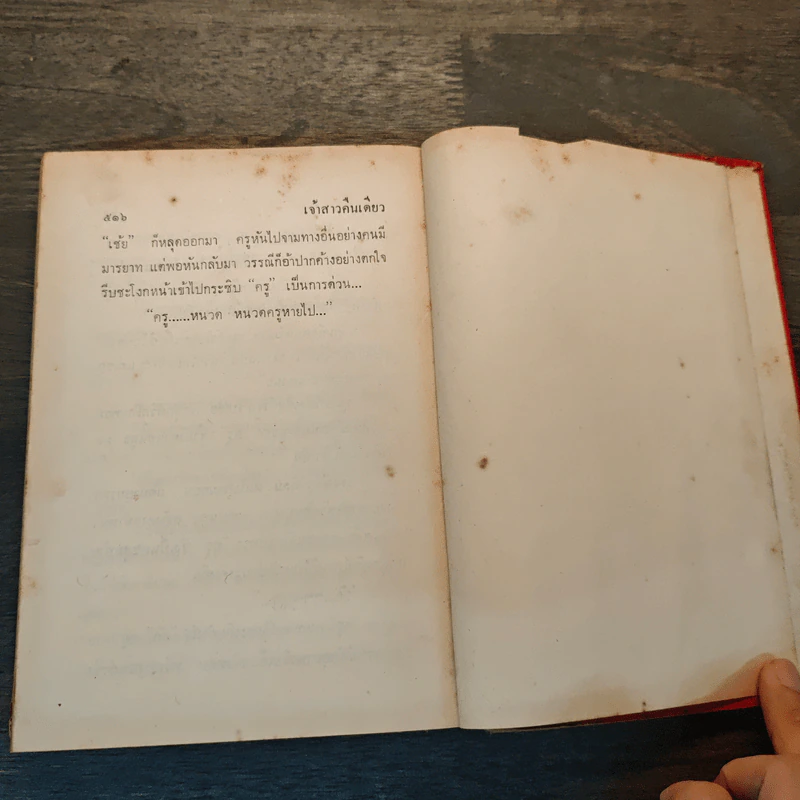 ๕๑๖ เจ้าสาวคืนเดียว
“เช้ย” ก็หลุดออกมา ครูหันไปจามทางอื่นอย่างคนมี
มารยาท แต่พอหันกลับมา วรรณีก็อ้าปากค้างอย่างตกใจ
รีบชะโงกหน้าเข้าไปกระซิบ “ครู” เป็นการด่วน...
“ครู......หนวด หนวดครูหายไป...”